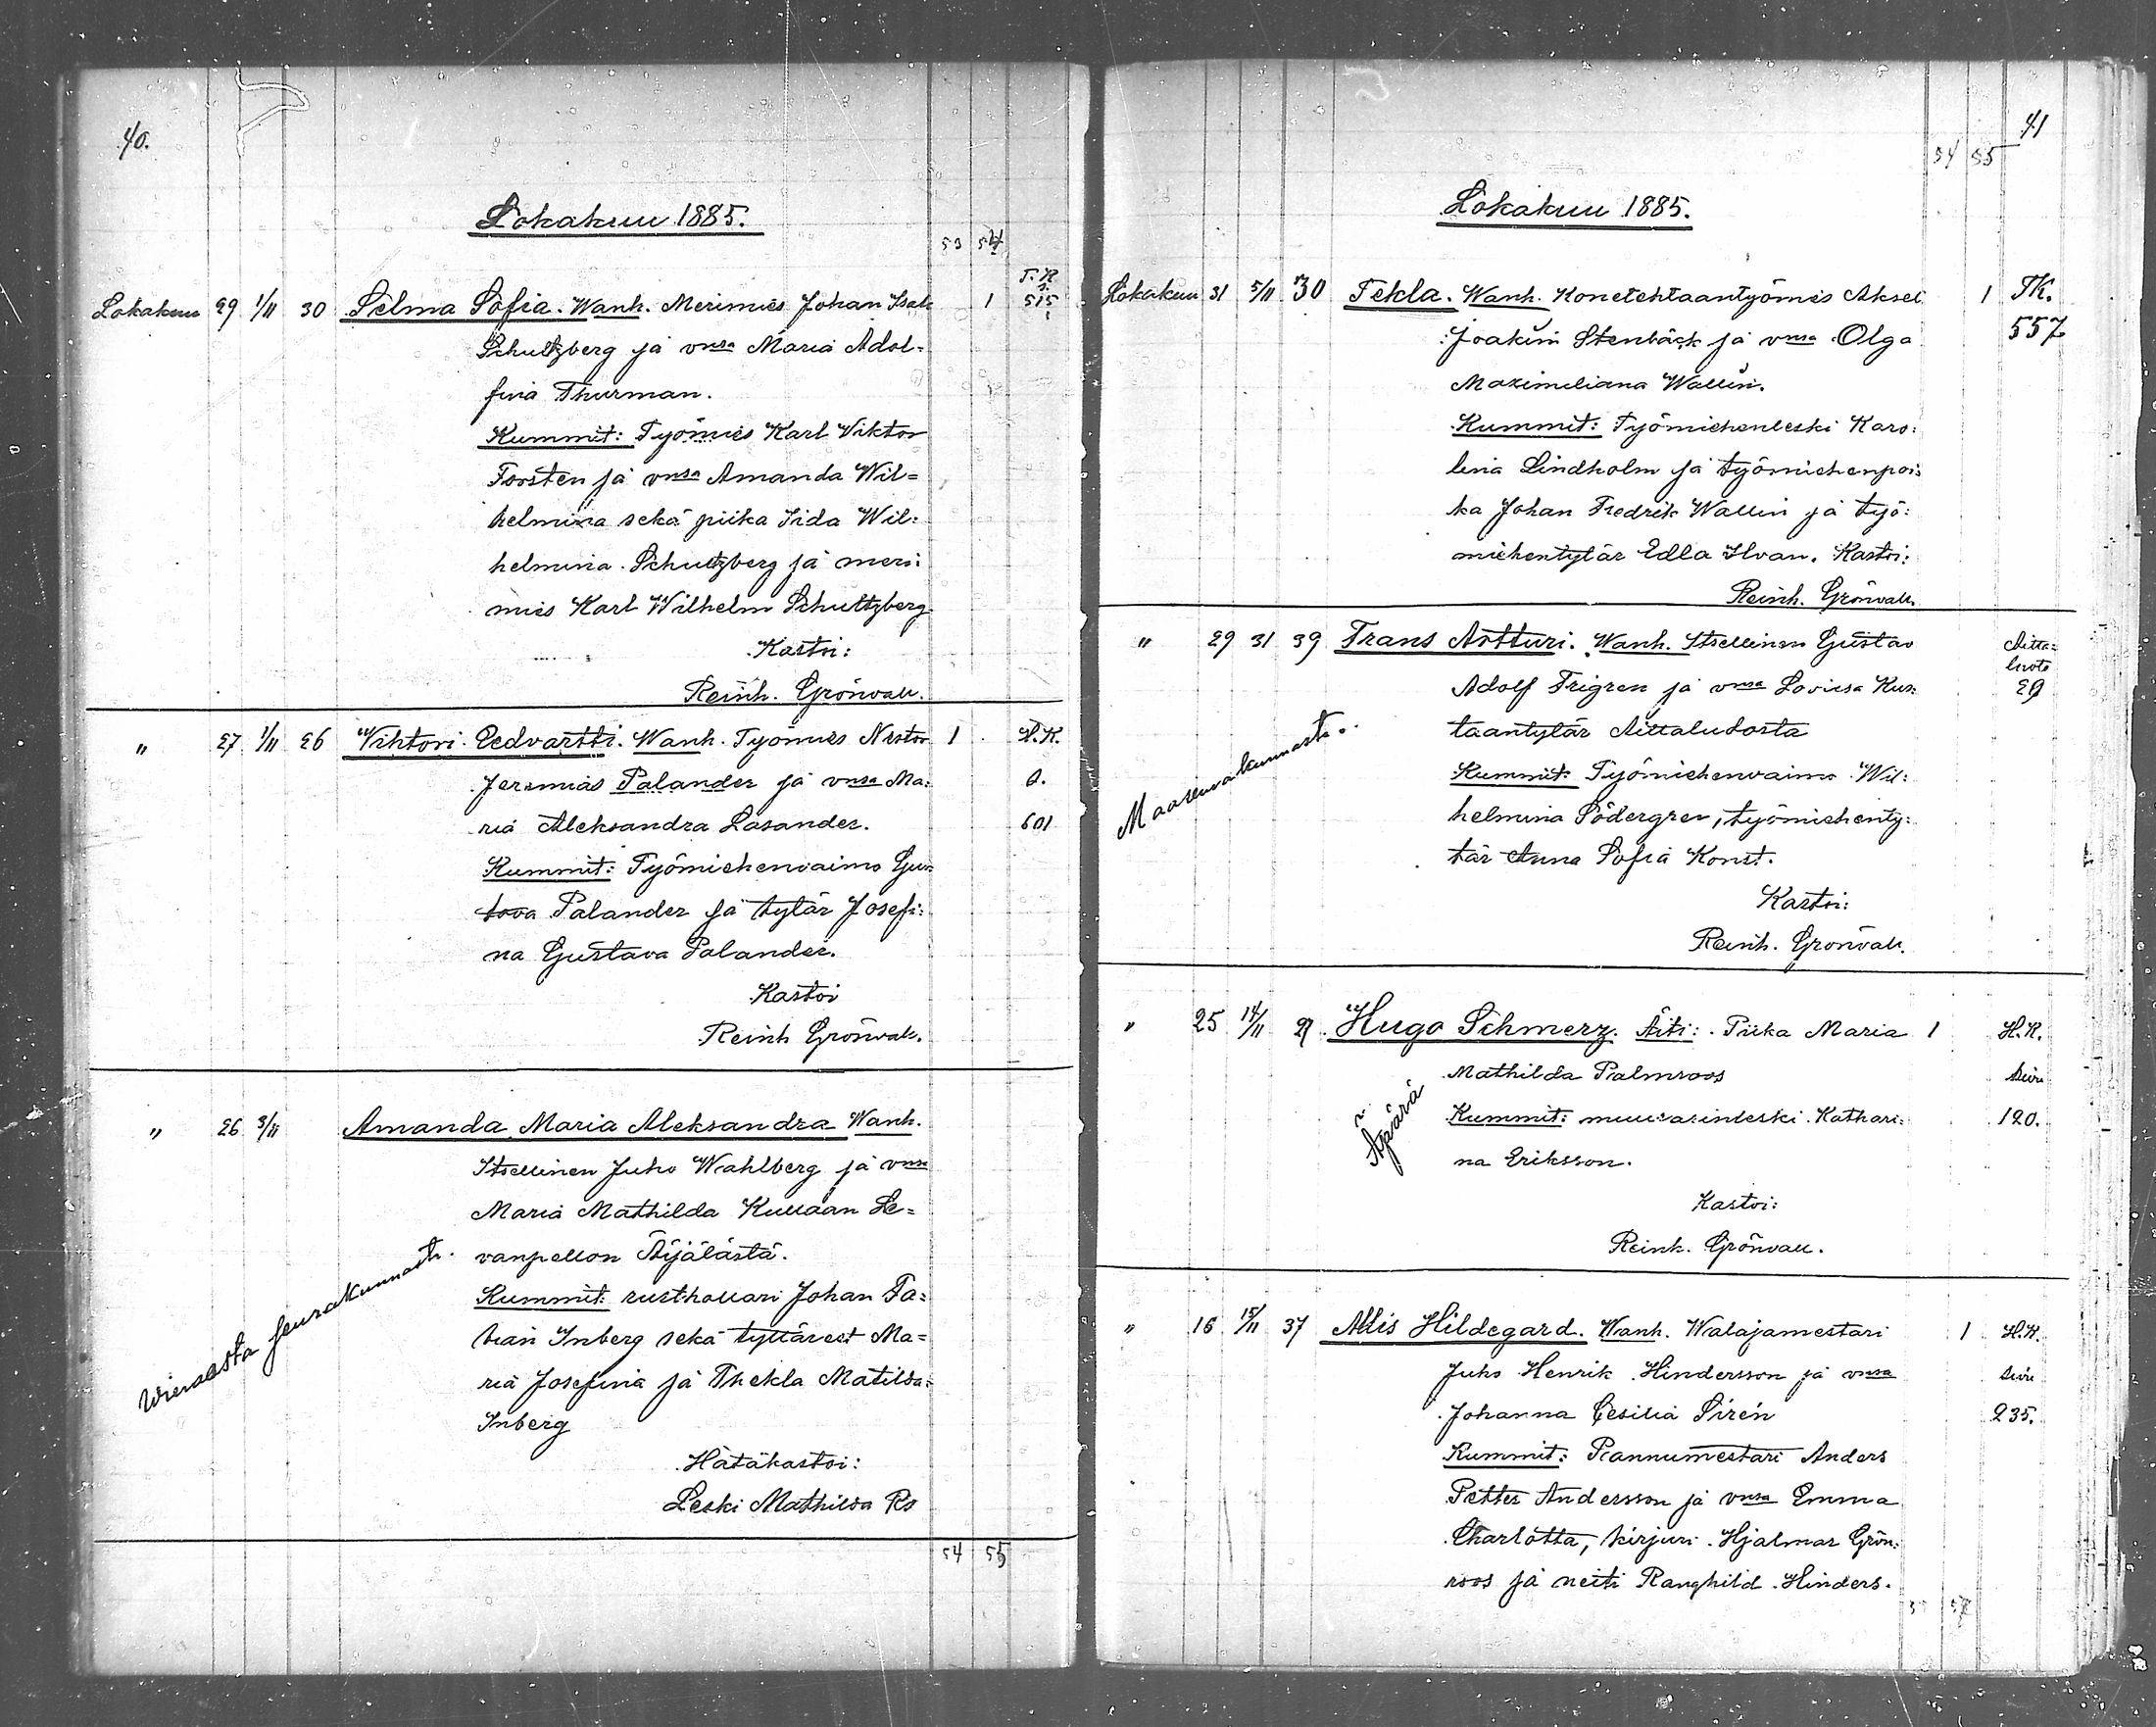 40.
Lokakuu 1885.
53 54
T.K
s.
Lokakuu 29 1/11 30 Selma Sofia. Wanh. Merimies Johan Isak 1 515
Schultzberg ja vnsa Maria Adol=
fina Thurman.
Kummit: Työmies Karl Viktor
Torsten ja vnsa Amanda Wil=
helmina sekä piika Iida Wil=
helmina Schultzberg ja meri=
mies Karl Wilhelm Schultzberg
Kastoi:
Reinh. Grönvall.
" 27 1/11 26 Vihtori Edvartti. Wanh. Työmies Nestor 1 H.K.
Jeremias Palander ja vnsa Ma=
ria Aleksandra Lasander. 601
Kummit: Työmiehenvaimo Gus=
tava Palander ja tytär Josefi=
na Gustava Palander.
Kastoi
Reinh Grönvall.
" 26 3/11 Amanda Maria Aleksandra Wanh.
Itsellinen Juho Wahlberg ja vnsa
Maria Mathilda Kullaan Le=
vanpellon Äijälästä.
Wieraasta seurakunnasta.
Kummit: rusthollari Johan Fa=
bian Inberg sekä tyttäret Ma=
ria Josefina ja Thekla Matilda
Inberg
Hätäkastoi:
Leski Mathilda Ro
54 55
41
54 55
Lokakuu 1885.
Lokakuu 31 5/11 30 Tekla. Wanh. Konetehtaantyömies Aksel 1 TK.
Joakim Stenbäck ja vnsa Olga 557
Maximiliana Wallin.
Kummit: Työmiehenleski Karo=
lina Lindholm ja työmiehenpoi=
ka Johan Fredrik Wallin ja työ=
miehentytär Edla Ilvan. Kastoi:
Reinh. Grönvall.
" 29 31 39 Frans Artturi. Wanh. Itsellinen Gustav Aitta=
luoto
Adolf Frigren ja vnsa Loviisa Kus= 29
taantytär Aittaluodosta
Maaseurakunnasta.
Kummit: Työmiehenvaimo Wil=
helmina Södergren, työmiehenty=
tär Anna Sofia Konst.
Kastoi:
Reinh. Grönvall.
" 25 14/11 27 Hugo Schmerz. Äiti: Piika Maria 1 H.K.
Mathilda Palmroos sivu
Äpärä
Kummit: muurarinleski Kathari= 120.
na Eriksson.
Kastoi:
Reinh. Grönvall.
" 16 15/11 37 Allis Hildegard. Wanh. Walajamestari 1 H.K.
Juho Henrik Hindersson ja vnsa sivu
Johanna Cesilia Sirén 235.
Kummit: Pannumestari Anders
Petter Andersson ja vnsa Emma
Charlotta, kirjuri Hjalmar Grön=
roos ja neiti Ranghild Hinders=